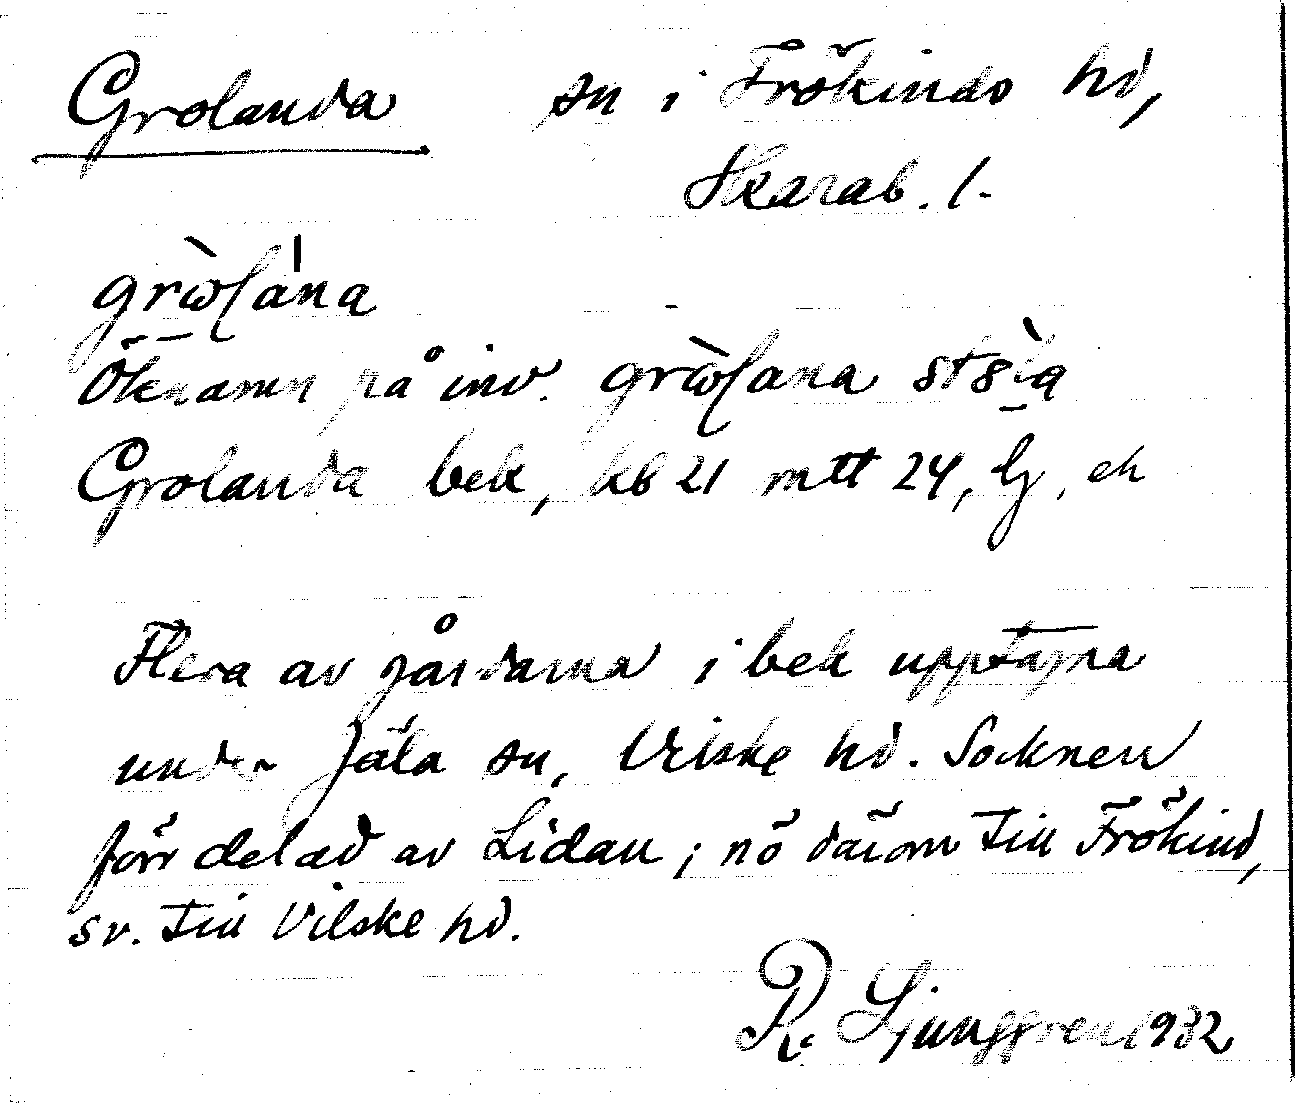 Grolanda sn i Frökinds hd,
Skarab. l.
grὼlána
Öknamn på inv. grὼlana
Grolanda bek, kb 21 mtt 24, lj, ek
Flera av gårdarna i bek upptagna
under Jäla sn, Vilske hd. Socknen
förr delad av Lidan; nö därom till Frökind,
sv. till Vilske hd.
R. Ljunggren 1932